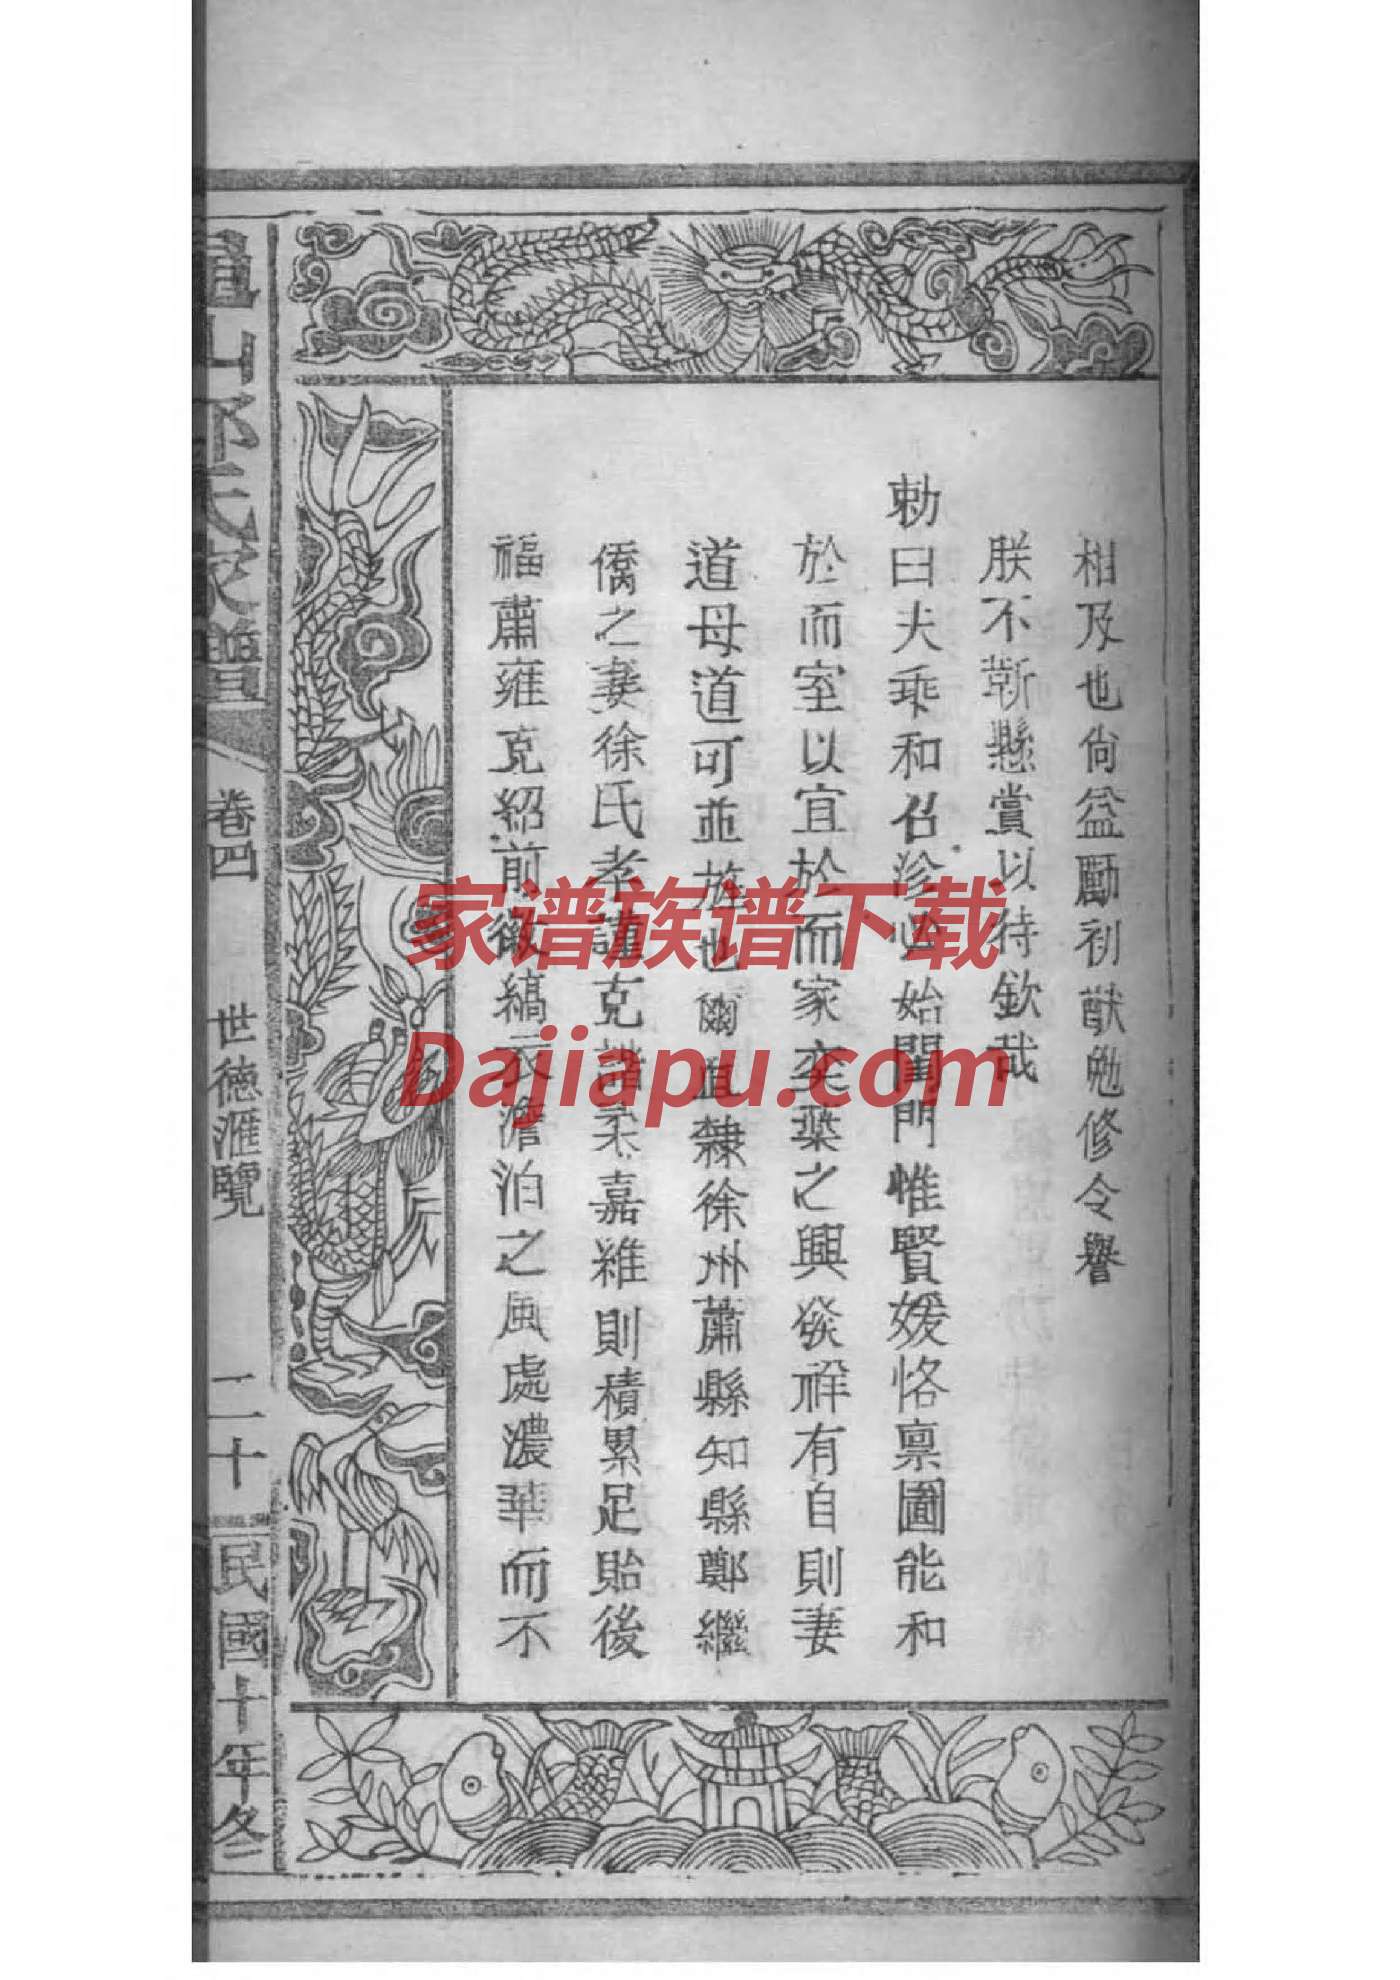 相及也尙益勵初猷勉修令譽
朕不靳懸賞以待欽哉
勅曰夫乖和召沴必始閨門惟賢媛恪禀圖能和
於而室以宜於而家奕葉之興發祥有自則妻
道母道可並旌也爾直隸徐州蕭縣知縣鄭繼
僑之妻徐氏孝謹克諧柔嘉維則積累足貽後
福肅雍克紹前徽縞衣澹泊之風處濃華而不
山 氏家譜
卷四
世德滙覽
二十
民國十年冬
家谱族谱下载
Dajiapu.com